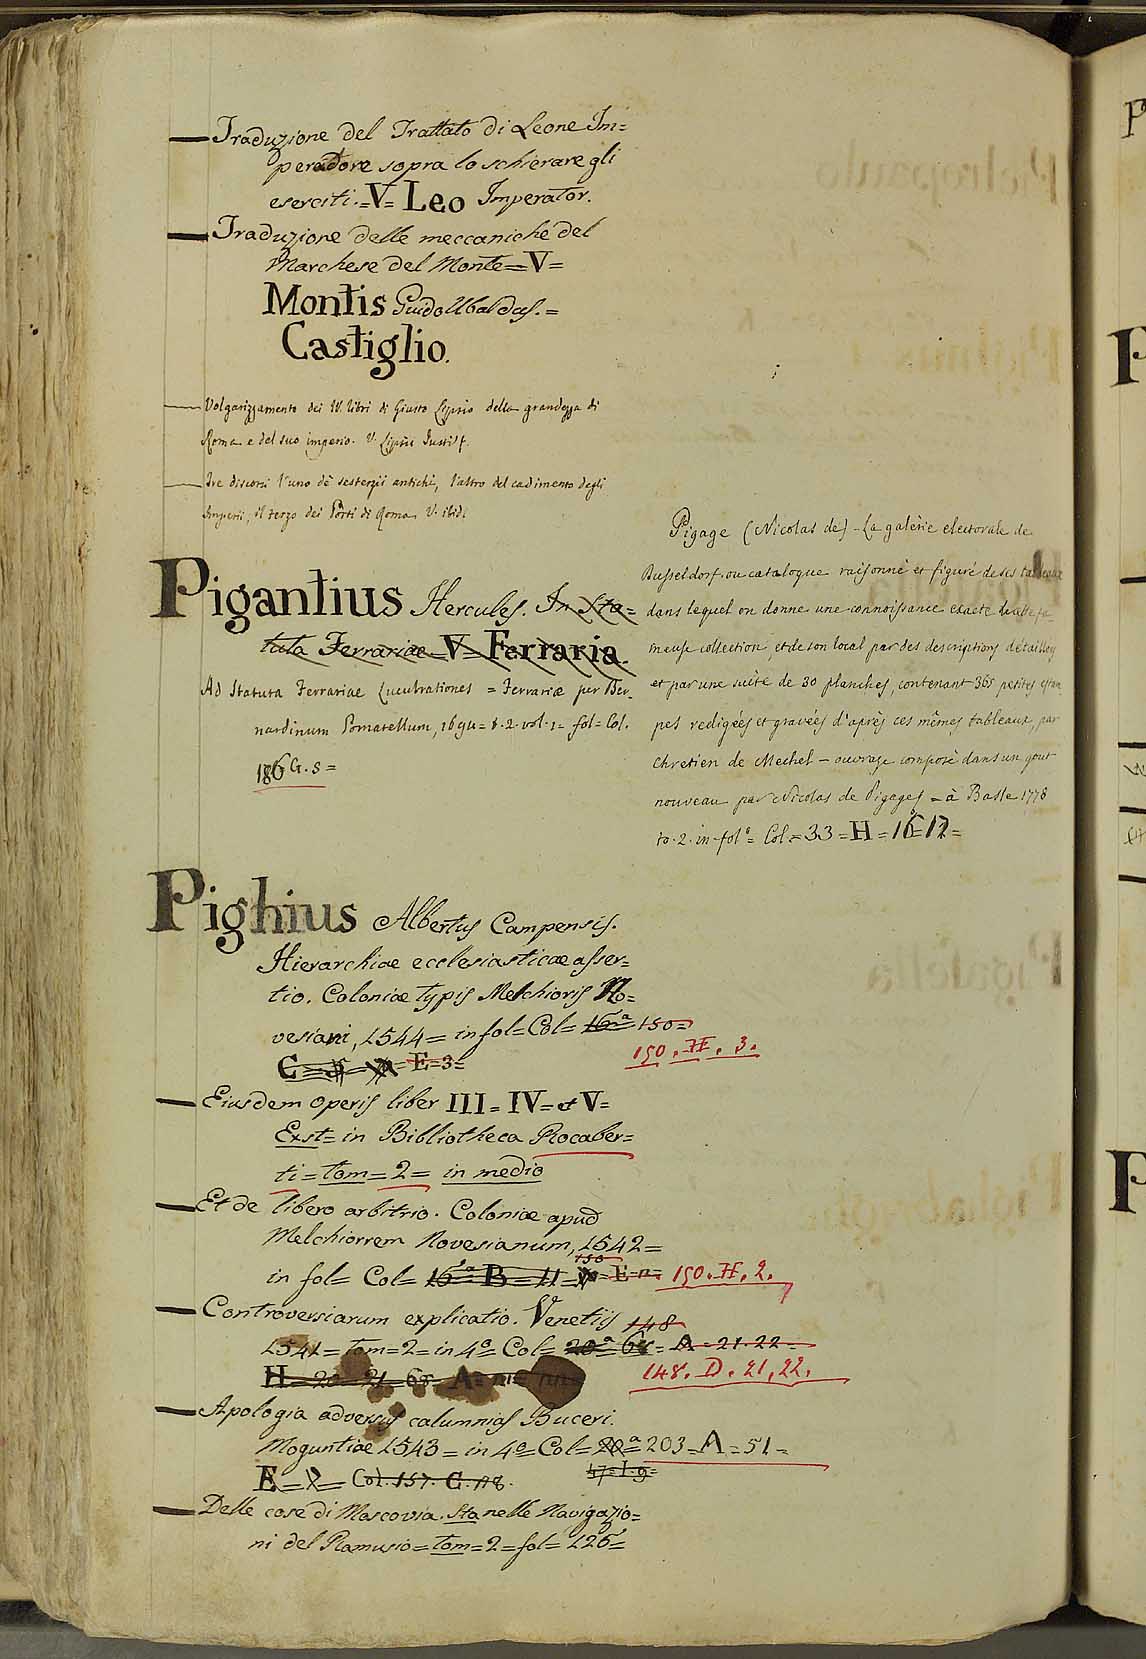 Traduzione del Trattato di Leone Im=
peradore sopra lo schierare gli
eserciti.=V= Leo Imperator.
Traduzione delle meccaniche del
Marchese del Monte=V=
Montis Guido Ubaldus.=
Castiglio.
Volgarizzamento dei IV. libri di Giusto Lipsio della grandezza di
Roma e del suo imperio. V. Lipsii Justi
Tre discorsi l'uno de sesterzii antichi, l'altro del cadimento degli
Imperii, il terzo dei Porti di Roma. V. ibid.
Pigantius Hercules. In Sta=
tuta Ferrariae V= Ferraria.
Ad Statuta Ferrariae Lucubrationes = Ferrariæ per Ber_
nardinum Pomatellum, 1694= t. 2. vol. 1= fol= Col.
186 G. 5=
Pighius Albertus Campensis.
Hierarchiae ecclesiasticae asser=
tio. Coloniae typis Melchioris No=
vesiani, 1544= in fol= Col= 16ª 150=
150. H. 3.
C= E=3=
Eiusdem operis liber III= IV= et V=
Exst= in Bibliotheca Rocaber=
ti= tom= 2= in medio
Et de libero arbitrio. Coloniae apud
Melchiorrem Novesianum, 1542=
150
in fol= Col= 16ª B= 11= E= 150. H. 2.
Controversiarum explicatio. Venetiis 148
1541= tom=2= in 4º= Col= 20ª 68= A=21.22=
H= 20=21=68= A= 148. D. 21,22.
Apologia adversus calumnias Buceri.
Moguntiae 1543= in 4º= Col= 20ª= 203=A=51=
47=I.9=
E= Col. 157. C. 118.
Delle cose di Moscovia. Sta nelle Navigazio=
ni del Ramusio= tom= 2= fol= 126=
Pigage (Nicolas de) - La galèrie electorale de
Dusseldorf. ou catalogue raisonné et figuré de ses tableaux
dans lequel on donne une connoissance exacte de cette fa_
meuse collection, et de son local par des descriptions détaillés
et par une suite de 30 planches, contenant 365 petites estam
pes redigées et gravées d'après ces mêmes tableaux, par
Chretien de Mechel - ouvrage composé dans un gout
nouveau par Nicolas de Pigages = à Basle 1778
to. 2. in-folº= Col.= 33=H=16=17=